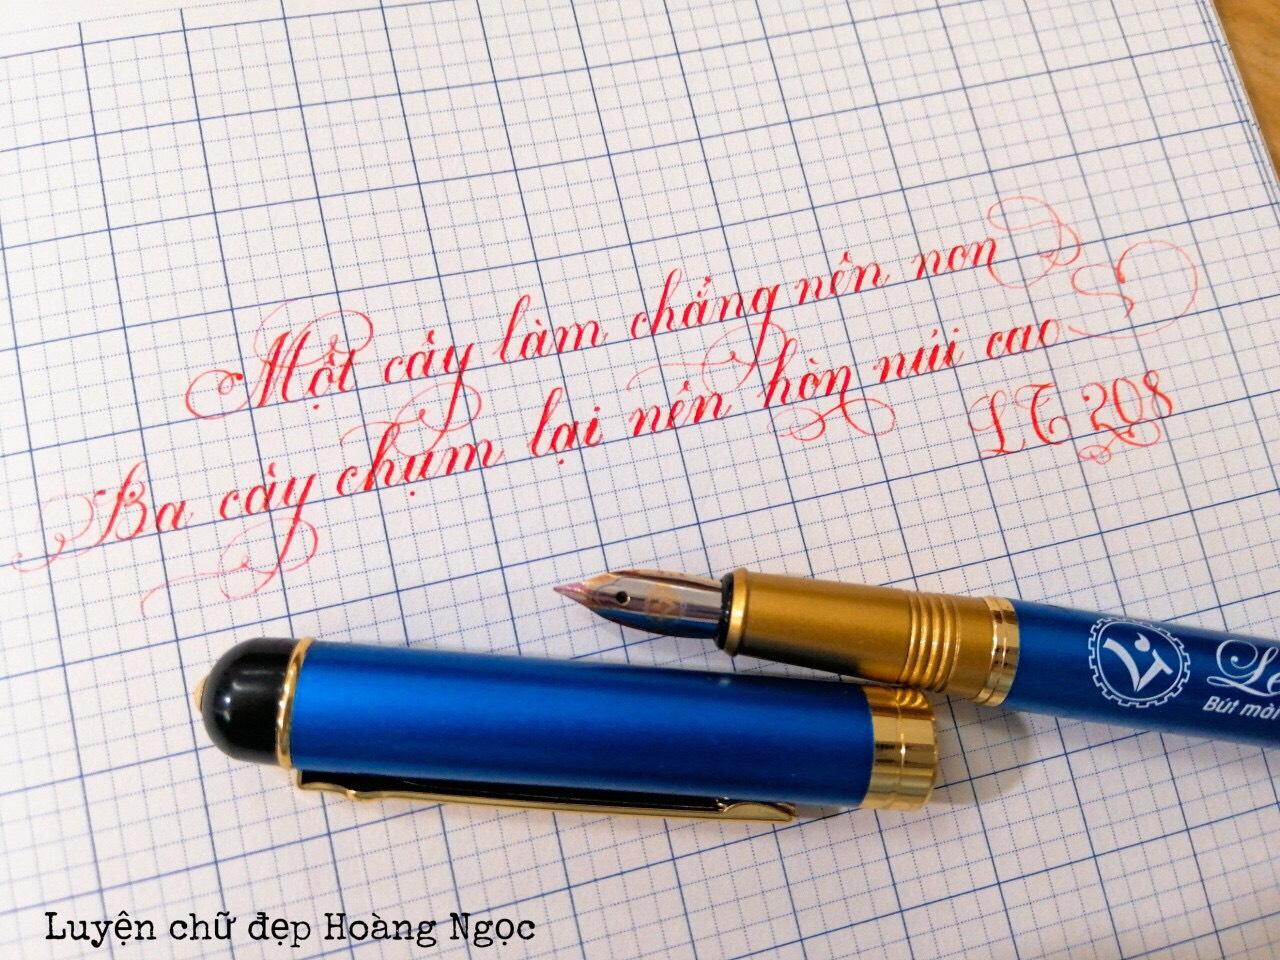 Một cây làm chẳng nên non
Ba cây chụm lại nên hòn núi cao
LT 208
Bút mài
Luyện chữ đẹp Hoàng Ngọc